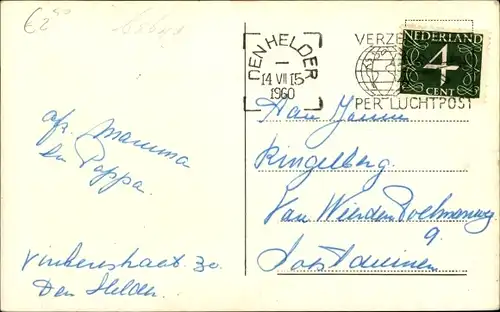 €2,50
DEN HELDER
14 VII 15
1960
VERZE
PER LUCHTPOST
NEDERLAND
4
CENT
afz. Mamma
en Pappa.
Vinkenstraat 30
Den Helder.
Aan
Ringelberg.
Van Wierden Poelmanweg
9.
Oostduinen